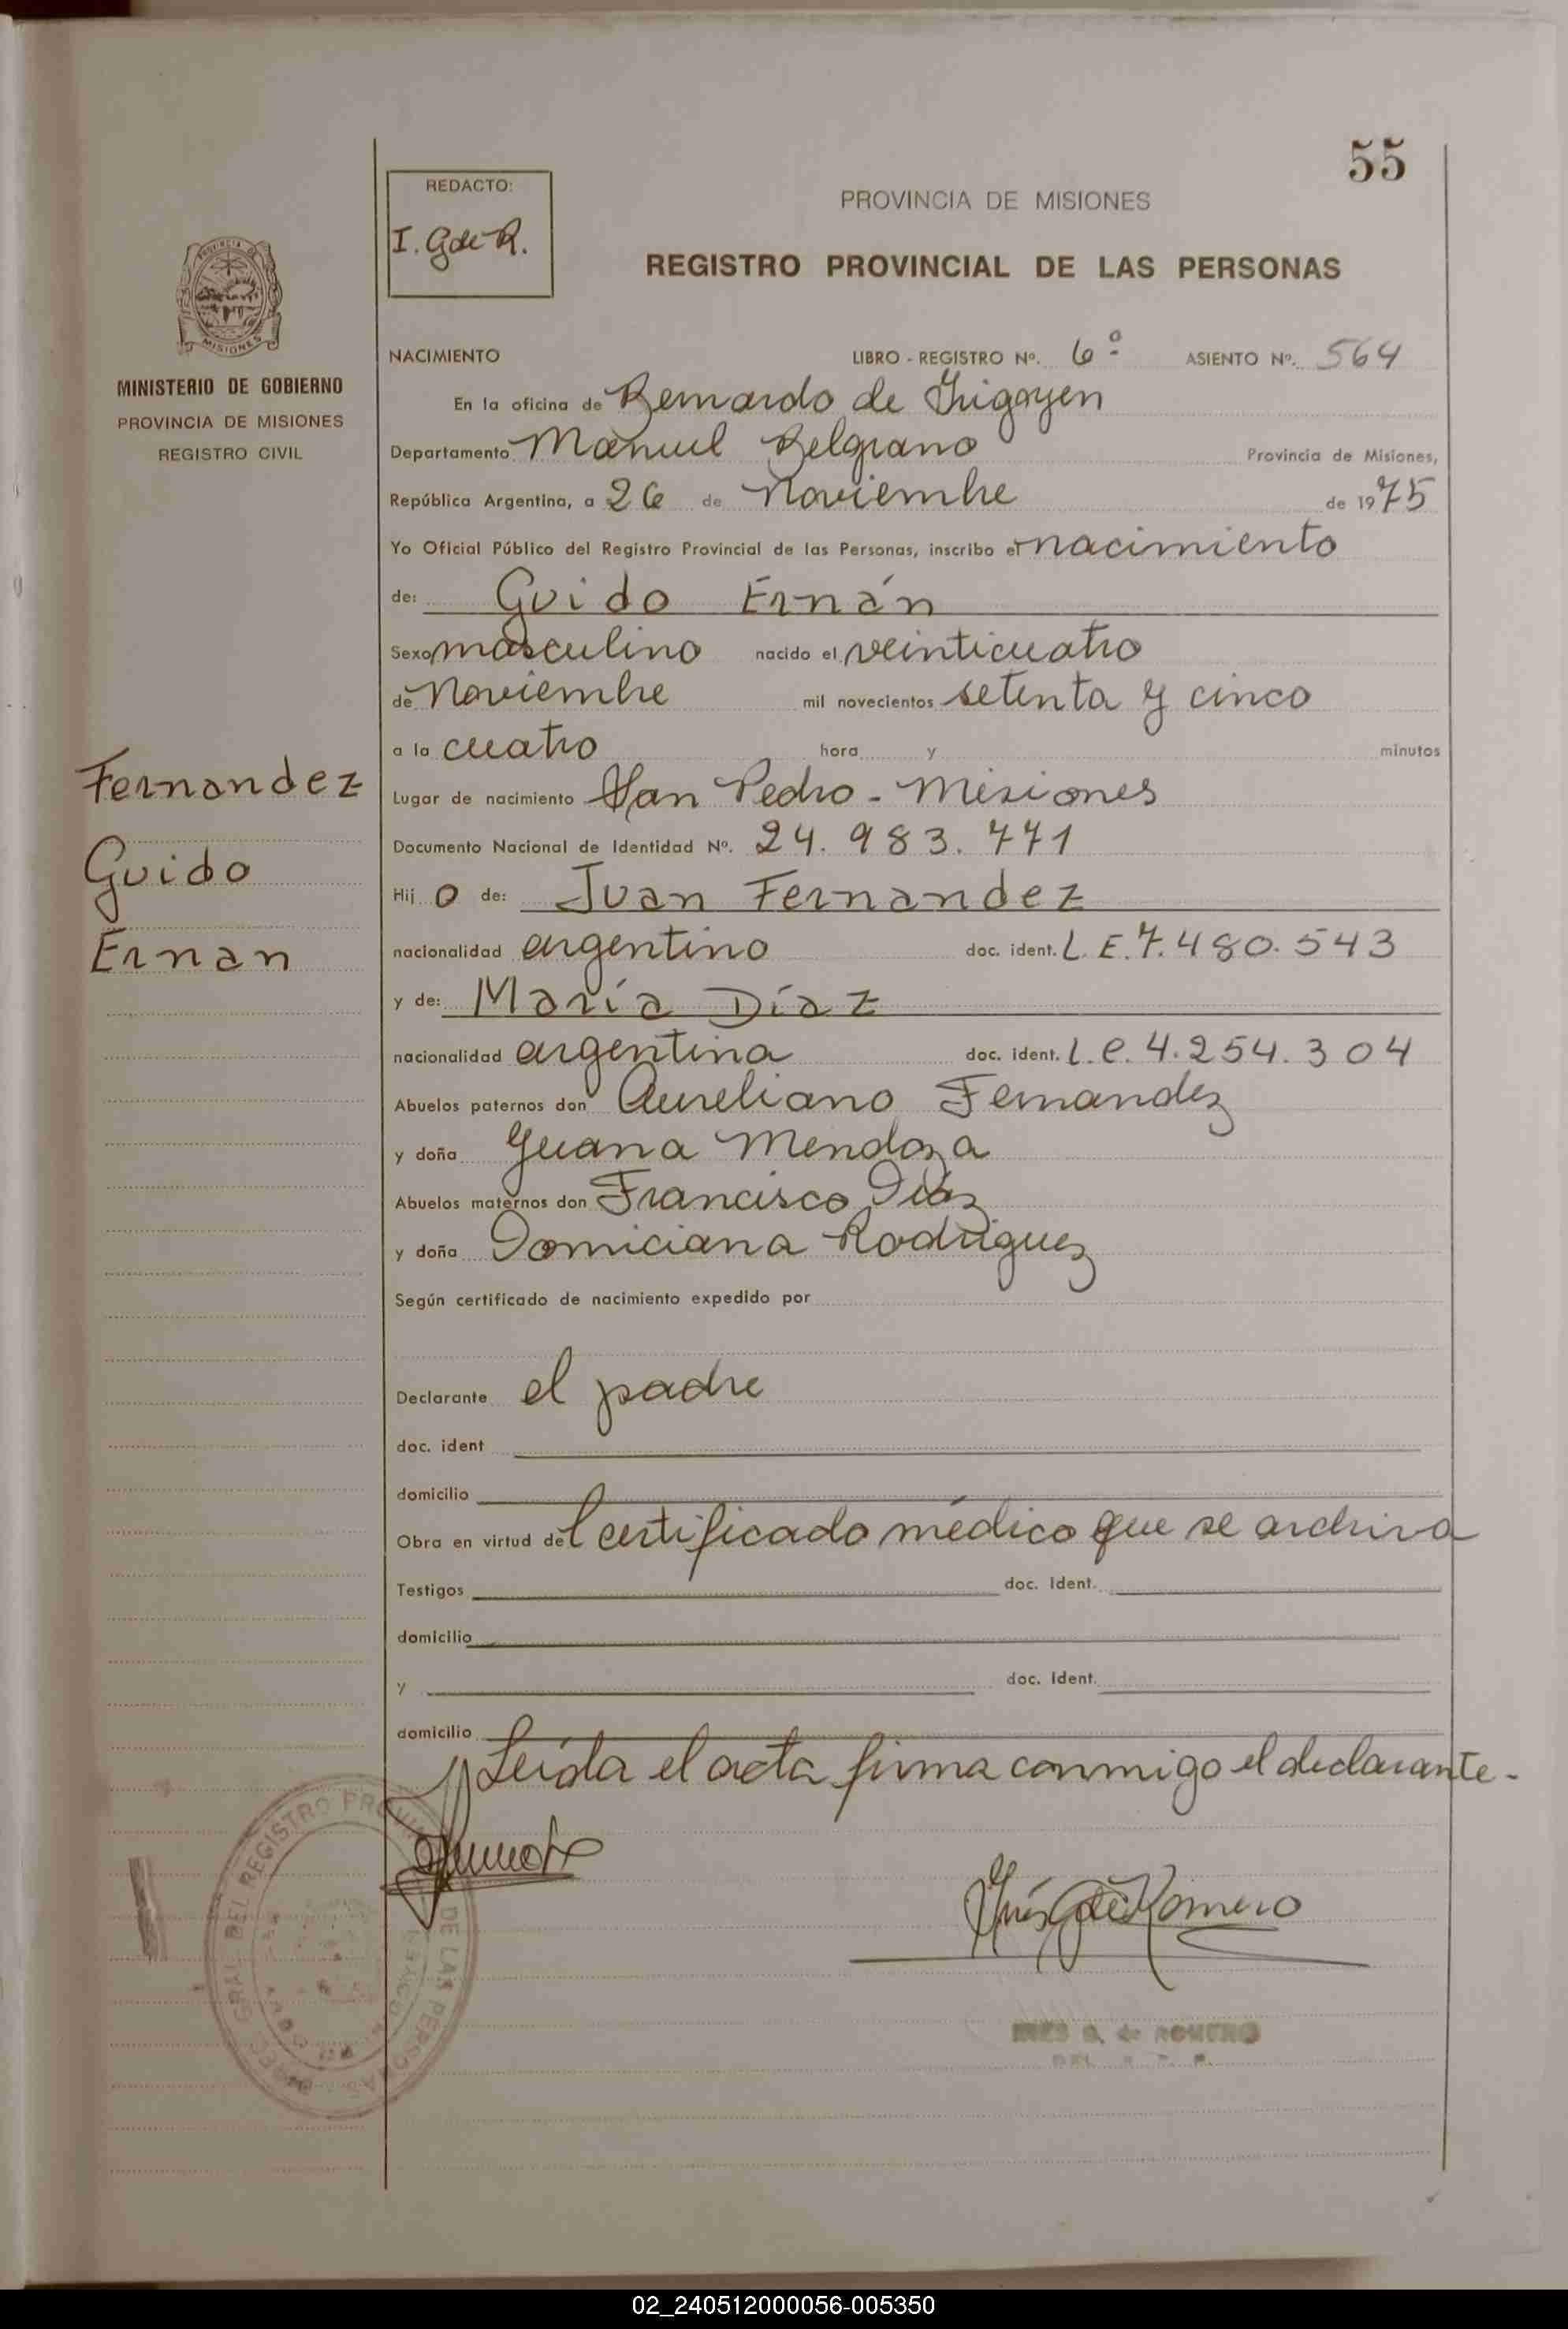 55
REDACTO:
I. G de R.
PROVINCIA DE MISIONES
REGISTRO PROVINCIAL DE LAS PERSONAS
MISIONES
MINISTERIO DE GOBIERNO
PROVINCIA DE MISIONES
REGISTRO CIVIL
NACIMIENTO LIBRO - REGISTRO Nº. 6º ASIENTO Nº. 564
En la oficina de Bernardo de Irigoyen
Departamento Manuel Belgrano Provincia de Misiones,
República Argentina, a 26 de Noviembre de 1975
Yo Oficial Público del Registro Provincial de las Personas, inscribo el nacimiento
de: Guido Ernán
Sexo masculino nacido el veinticuatro
de Noviembre mil novecientos setenta y cinco
a la cuatro hora y minutos
Fernandez
Guido
Ernan
Lugar de nacimiento San Pedro - Misiones
Documento Nacional de Identidad Nº. 24.983.771
Hij o de: Juan Fernandez
nacionalidad argentino doc. ident. L.E.7.480.543
y de: María Díaz
nacionalidad argentina doc. ident. L.C.4.254.304
Abuelos paternos don Aureliano Fernandez
y doña Juana Mendoza
Abuelos maternos don Francisco Diáz
y doña Domiciana Rodriguez
Según certificado de nacimiento expedido por
Declarante el padre
doc. ident
domicilio
Obra en virtud del certificado médico que se archiva
Testigos doc. Ident.
domicilio
y doc. Ident.
domicilio
Leída el acta firma conmigo el declarante.-
Inés G de Romero
INES G. de ROMERO
DEL REGISTRO PROVIN DE LAS PERSONAS
02_240512000056-005350